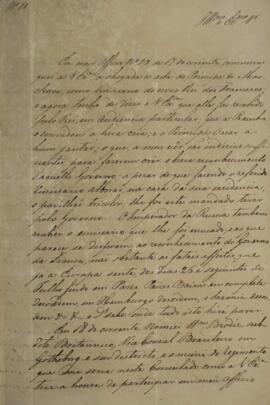 Nº 11
Illmo e Exmo Sr
Em meu Officio Nº 10 de 17 do corrente communi-
quei a V Exª a chegada a esta do Principe de
como emissario do novo Rei dos Francezes;
e agora tenho de dizer a V Exª que elle foi recebido
pelo Rei, em audiencia particular, que a Rainha
o convidou a huma ceia, e o Principe Oscar a
hum jantar; o que, a meu ver, são indicios suffi-
cientes para fazerem crer o breve reconhecimento
d'aquelle Governo, a pesar de que fazendo o referido
Emissario alvorar, na casa da sua residencia,
o pavilhão tricolor, lhe foi este mandado tirar
pelo Governo. O Imperador da Russia tambem
recebeo o emissario que lhe foi enviado, e ao que
parece se dispoem ao reconhecimento do Governo
da França, não obstante os fataes effeitos, que
já a Europa sente, dos dias 26 e seguintes de
Julho findo em Paris. Paizes Baixos em completa
desordem, em Hamburgo desordem, e Saxonia
&ª &ª e Ds sabe onde tudo isto hirá parar.
Em 18 do corrente nomeei Wm Brodie, sub-
dito Britannico, Vice Consul Brasileiro em
Gothenburg e seu districto, e o mesmo do regimento
que serve neste Consulado, como a V Exª
tive a honra de participar em meu Officio